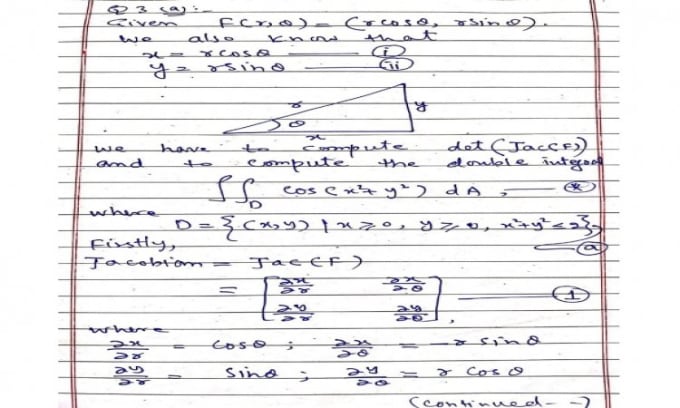 Q 3 (a):-
Given F(r,θ) = (rcosθ, rsinθ).
We also know that
x = rcosθ —— (i)
y = rsinθ —— (ii)
r
θ
y
x
we have to compute det(Jac(F))
and to compute the double integral
∫∫_D cos(x²+y²) dA, —— (*)
where
D = {(x,y) | x≥0, y≥0, x²+y²≤2},
—— (a)
Firstly,
Jacobian = Jac(F)
= [∂x/∂r ∂x/∂θ
∂y/∂r ∂y/∂θ], —— (1)
where
∂x/∂r = cosθ ; ∂x/∂θ = -r sinθ
∂y/∂r = sinθ ; ∂y/∂θ = r cosθ
(continued--)